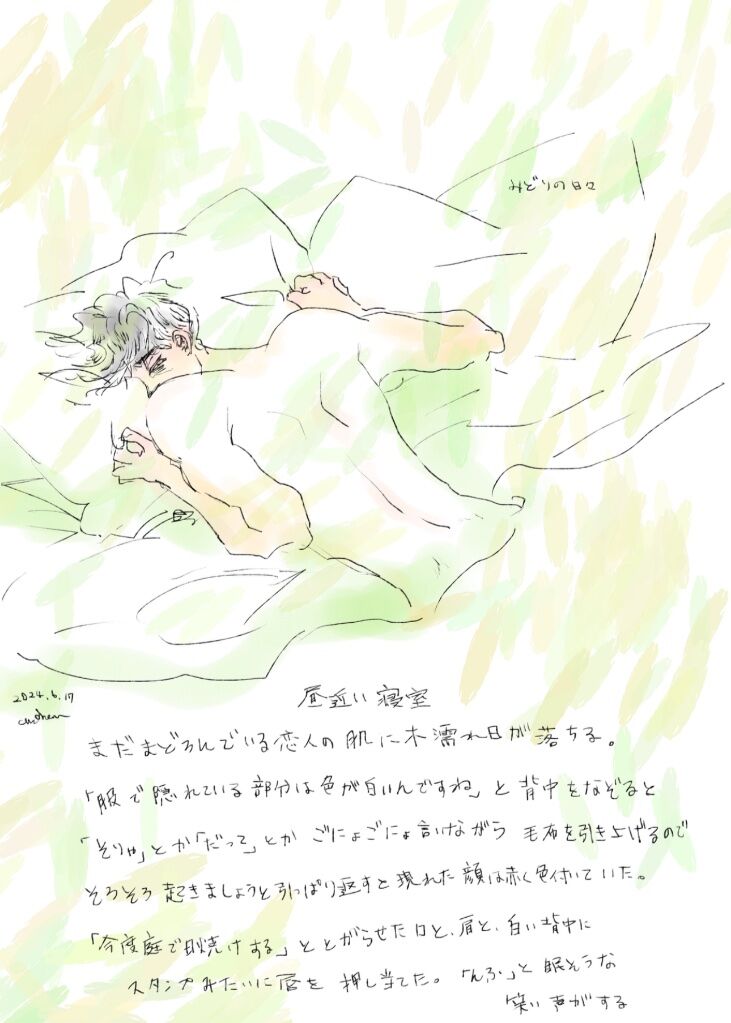 みどりの日々
2024.6.17
昼近い寝室
まだまどろんでいる恋人の肌に木濡れ日が落ちる。
「服で隠れている部分は色が白いんですね」と背中をなぞると
「そりゃ」とか「だって」とか ごにょごにょ言いながら 毛布を引き上げるので
そろそろ起きましょうと引っぱり返すと現れた顔は赤く色付いていた。
「今度庭で日焼けする」ととがらせた口と、肩と、白い背中に
スタンプみたいに唇を押し当てた。「んふ」と眠そうな
笑い声がする